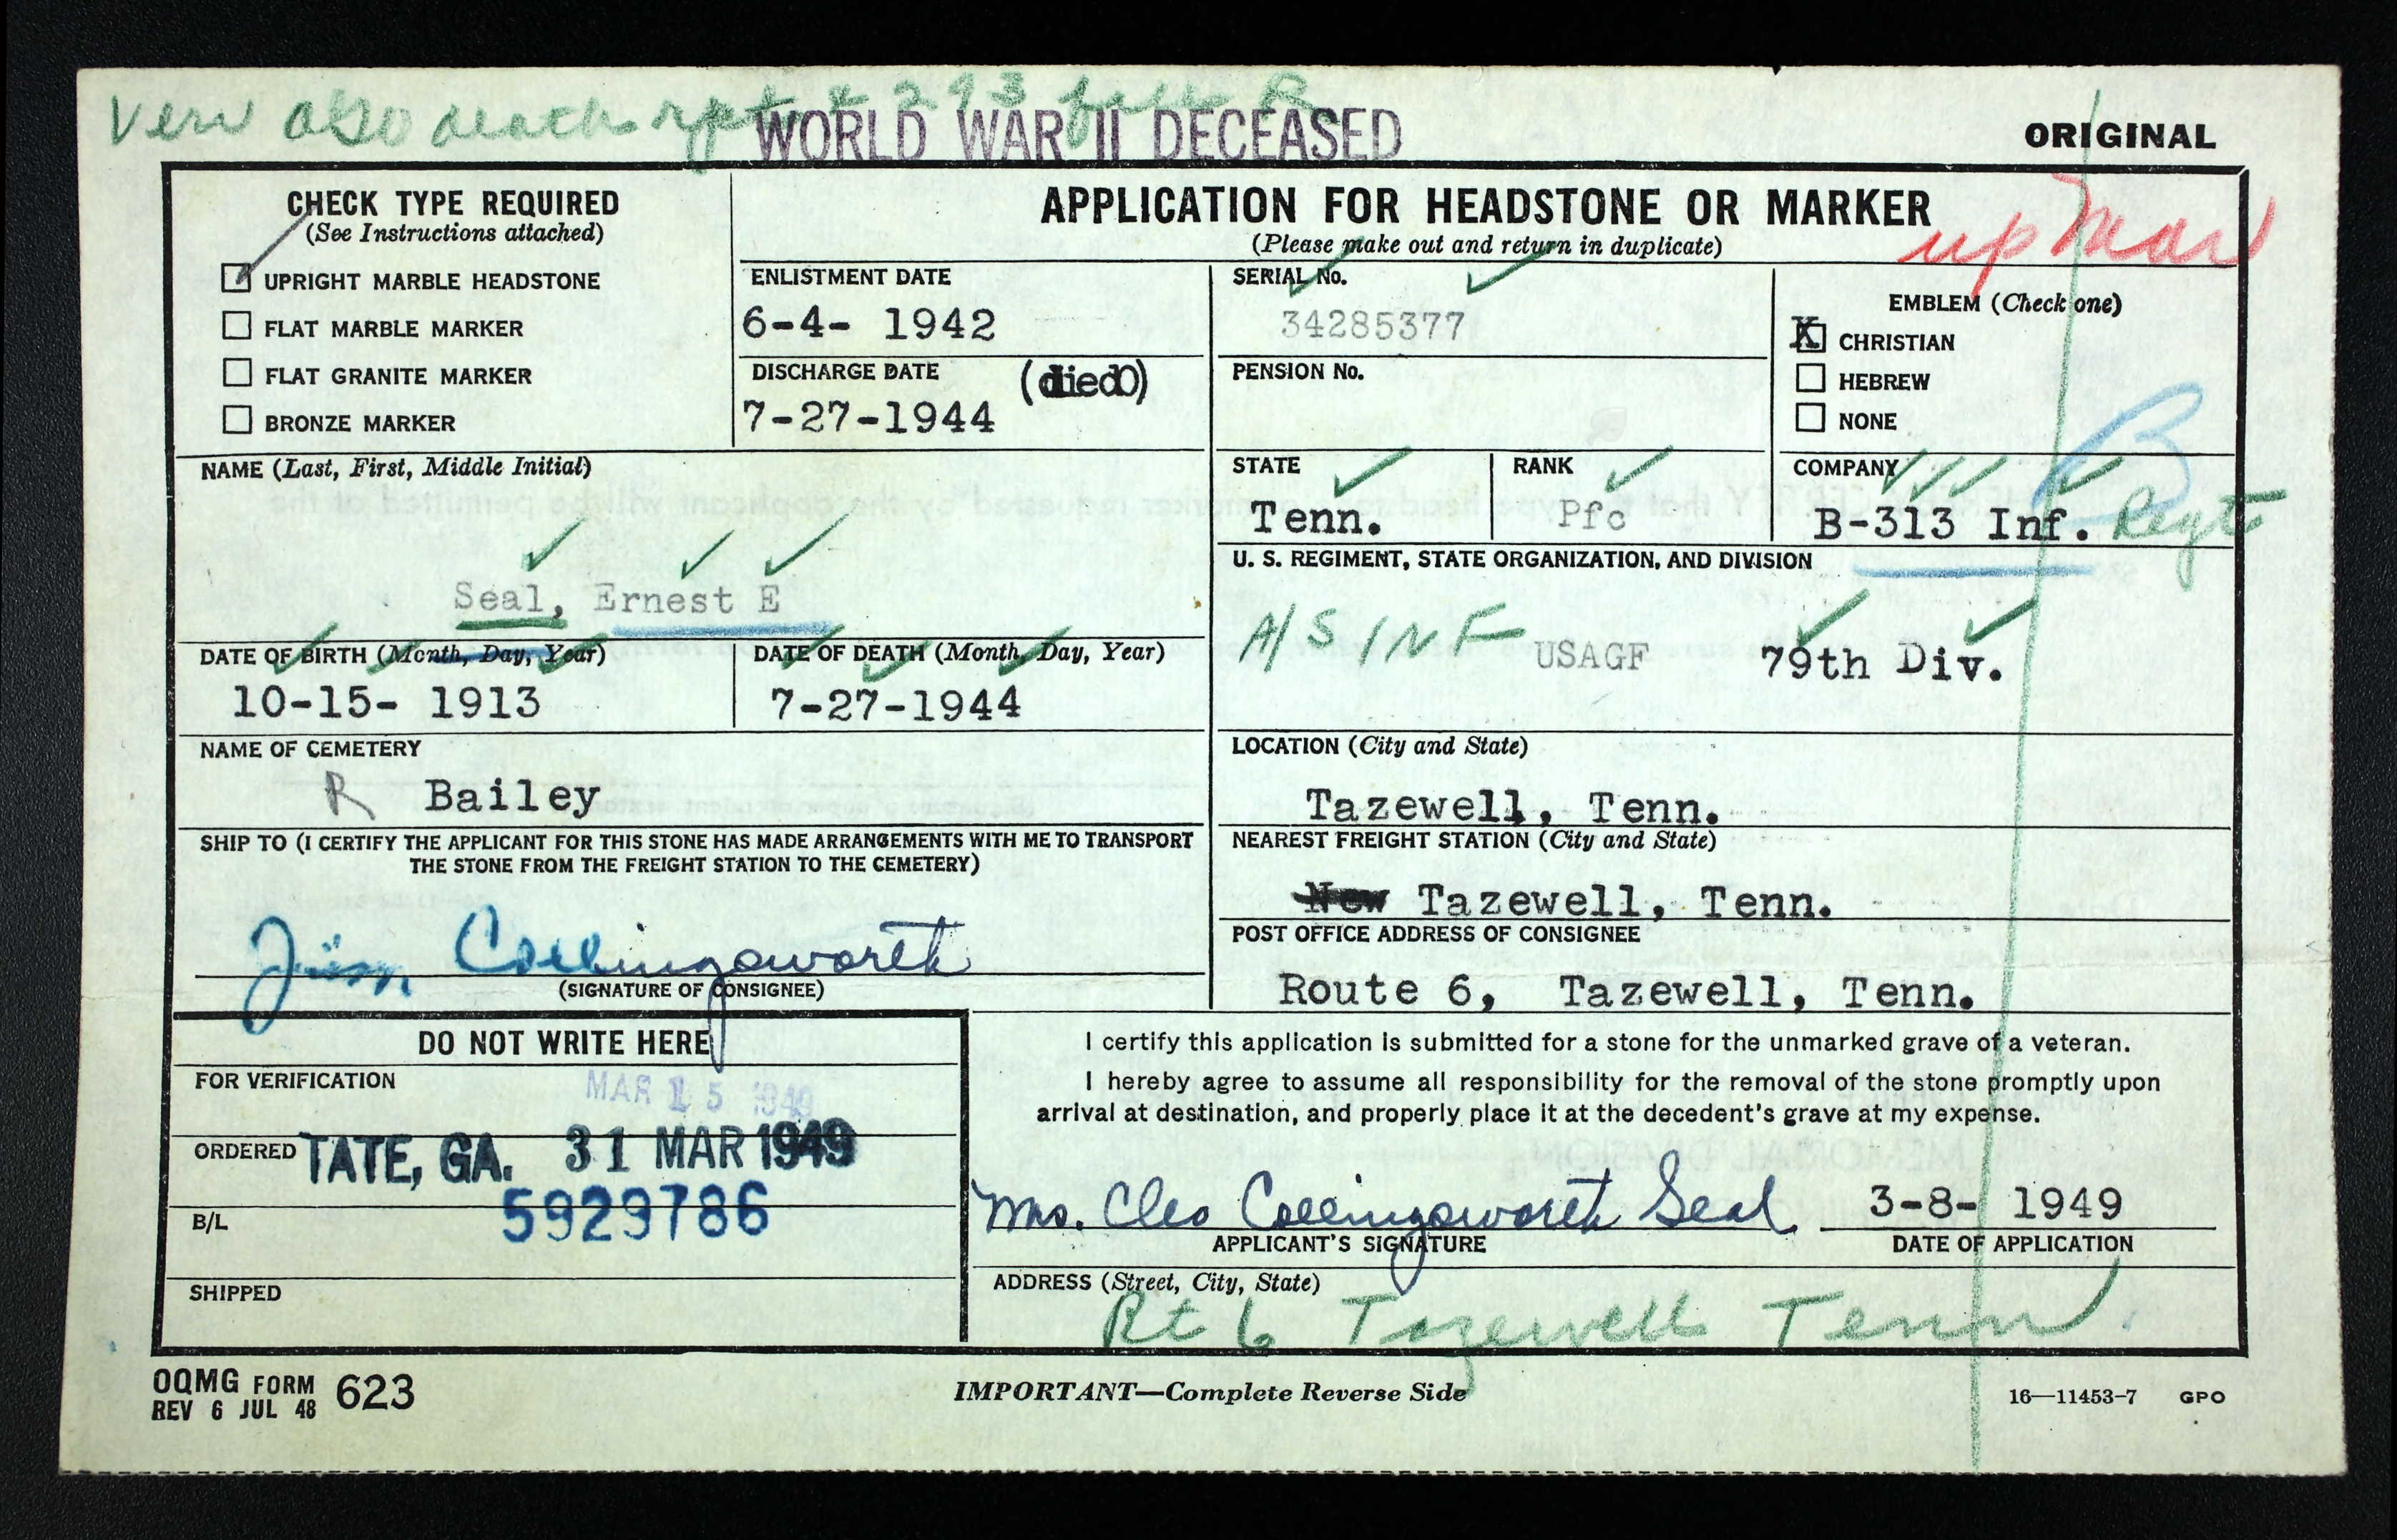 Veri also death rpt # 293
WORLD WAR II DECEASED
ORIGINAL
CHECK TYPE REQUIRED
(See Instructions attached)
UPRIGHT MARBLE HEADSTONE
FLAT MARBLE MARKER
FLAT GRANITE MARKER
BRONZE MARKER
APPLICATION FOR HEADSTONE OR MARKER
(Please make out and return in duplicate)
up Mar
ENLISTMENT DATE
6-4- 1942
DISCHARGE DATE (died)
7-27-1944
SERIAL No.
34285377
PENSION No.
EMBLEM (Check one)
X CHRISTIAN
HEBREW
NONE
B
NAME (Last, First, Middle Initial)
Seal, Ernest E
STATE
Tenn.
RANK
Pfc
COMPANY
B-313 Inf. Regt
U. S. REGIMENT, STATE ORGANIZATION, AND DIVISION
A/S INF USAGF 79th Div.
DATE OF BIRTH (Month, Day, Year)
10-15- 1913
DATE OF DEATH (Month, Day, Year)
7-27-1944
NAME OF CEMETERY
R Bailey
LOCATION (City and State)
Tazewell, Tenn.
SHIP TO (I CERTIFY THE APPLICANT FOR THIS STONE HAS MADE ARRANGEMENTS WITH ME TO TRANSPORT
THE STONE FROM THE FREIGHT STATION TO THE CEMETERY)
Jim Collingsworth
(SIGNATURE OF CONSIGNEE)
NEAREST FREIGHT STATION (City and State)
New Tazewell, Tenn.
POST OFFICE ADDRESS OF CONSIGNEE
Route 6, Tazewell, Tenn.
DO NOT WRITE HERE
FOR VERIFICATION
MAR 15 1949
ORDERED TATE, GA. 31 MAR 1949
B/L 5929786
SHIPPED
I certify this application is submitted for a stone for the unmarked grave of a veteran.
I hereby agree to assume all responsibility for the removal of the stone promptly upon
arrival at destination, and properly place it at the decedent's grave at my expense.
Mrs. Cleo Collingsworth Seal 3-8- 1949
APPLICANT'S SIGNATURE DATE OF APPLICATION
ADDRESS (Street, City, State)
Rt 6 Tazewell Tenn
OQMG FORM 623
REV 6 JUL 48
IMPORTANT—Complete Reverse Side
16—11453-7 GPO